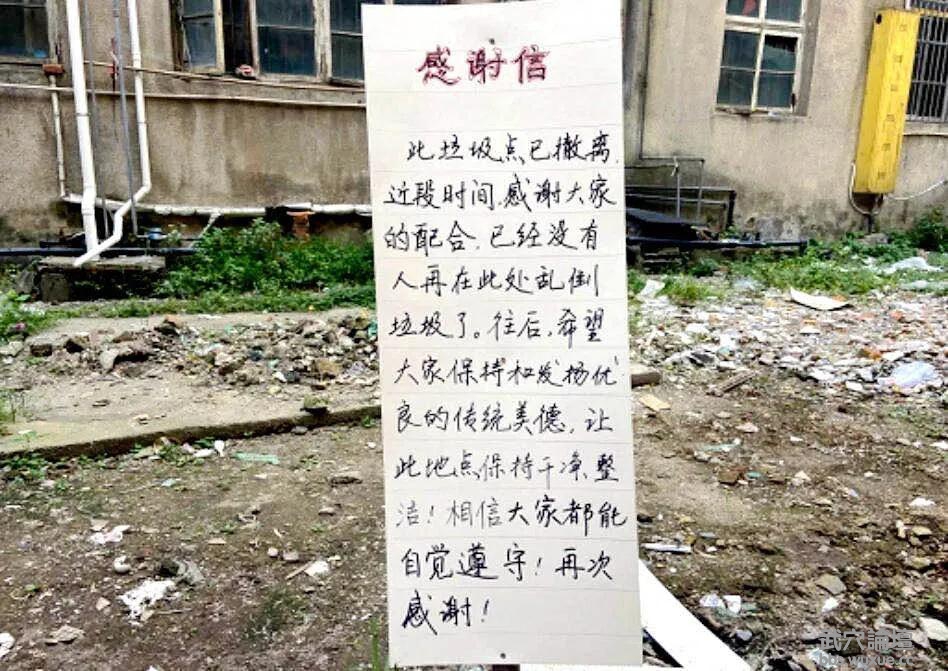 感谢信
此垃圾点已撤离,
近段时间,感谢大家
的配合,已经没有
人再在此处乱倒
垃圾了。往后,希望
大家保持和发扬优
良的传统美德,让
此地点保持干净、整
洁！相信大家都能
自觉遵守！再次
感谢！
武穴論壇
bbs.wuxue.cc